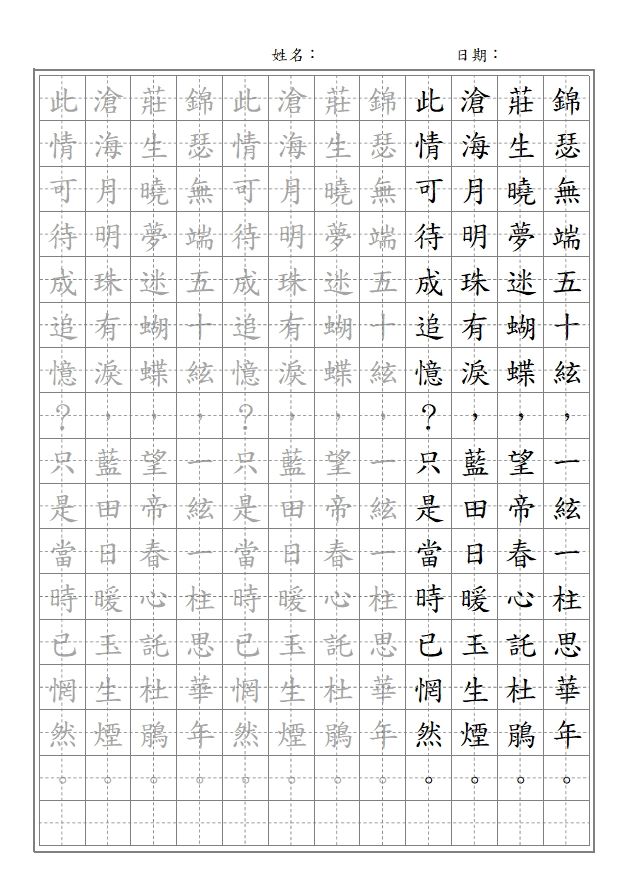 姓名：
日期：
錦瑟無端五十絃，一絃一柱思華年。
莊生曉夢迷蝴蝶，望帝春心託杜鵑。
滄海月明珠有淚，藍田日暖玉生煙。
此情可待成追憶？只是當時已惘然。
錦瑟無端五十絃，一絃一柱思華年。
莊生曉夢迷蝴蝶，望帝春心託杜鵑。
滄海月明珠有淚，藍田日暖玉生煙。
此情可待成追憶？只是當時已惘然。
錦瑟無端五十絃，一絃一柱思華年。
莊生曉夢迷蝴蝶，望帝春心託杜鵑。
滄海月明珠有淚，藍田日暖玉生煙。
此情可待成追憶？只是當時已惘然。